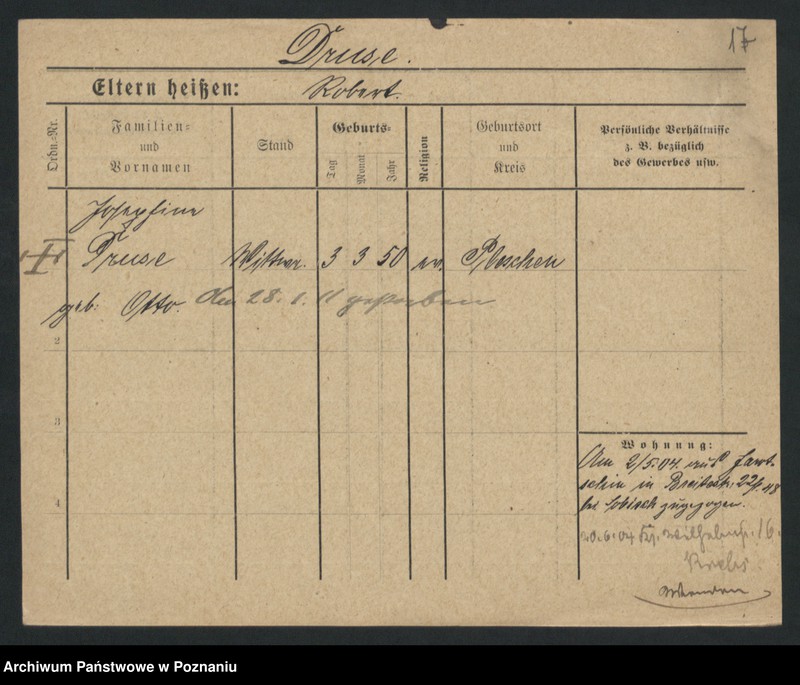 17
Druse.
Eltern heißen: Robert.
Ordn.-Nr.
Familien- und Vornamen
Stand
Geburts-
Tag Monat Jahr
Religion
Geburtsort und Kreis
Persönliche Verhältnisse z. B. bezüglich des Gewerbes usw.
Josephine
Druse Wittwe. 3 3 50 ev. Pleschen
geb. Otto. den 28. 1. 11 gestorben
2
3
4
Wohnung:
Am 2/5.04. aus Jarot-
schin in Breitestr. 22
bei zugezogen.
20.6.04 Wilhelmstr. 16.
Krebs